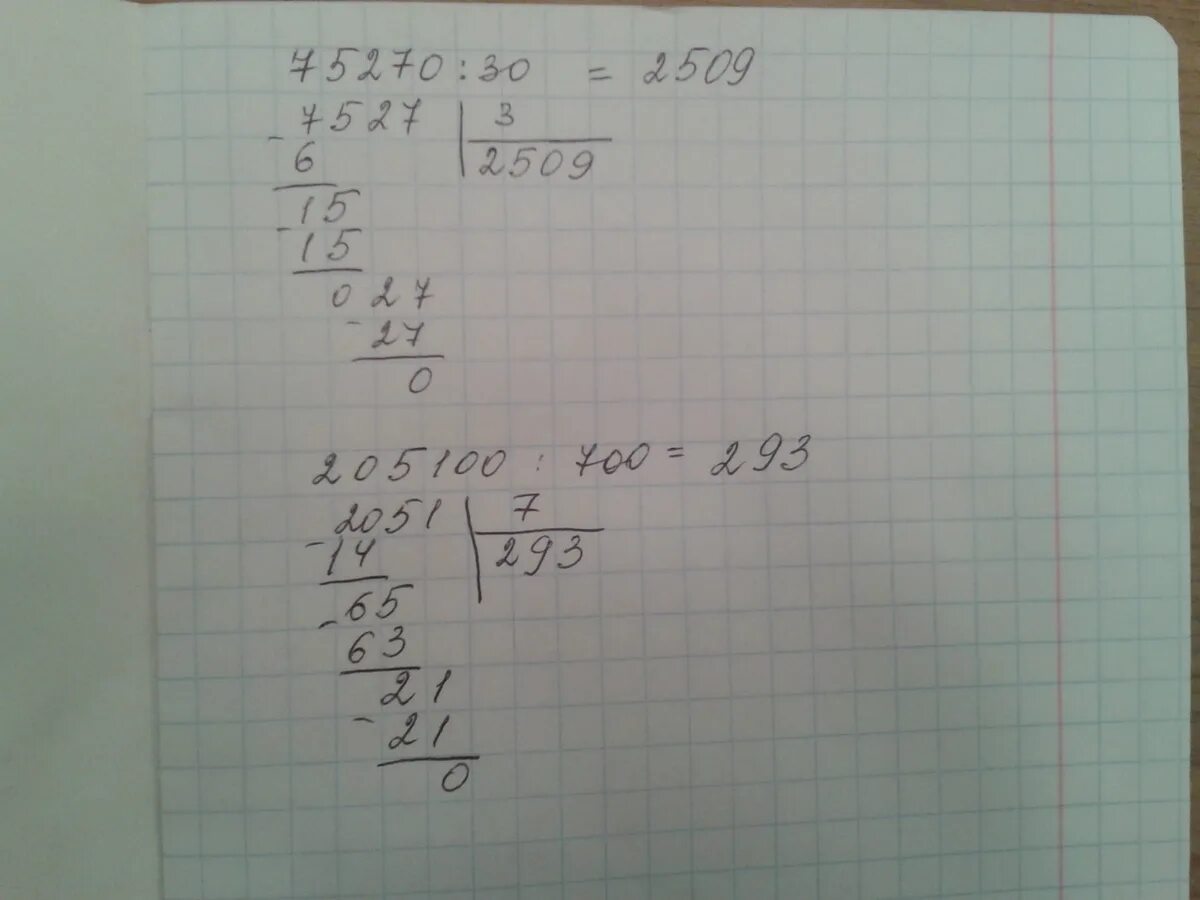 75270 : 30 = 2509
- 7527 | 3
6 | 2509
- 15
15
0 27
- 27
0
205100 : 700 = 293
- 2051 | 7
14 | 293
- 65
63
21
- 21
0